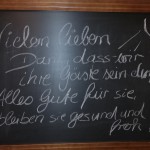 Vielen lieben
Dank dass wir
ihre Gäste sein durf
Alles Gute für sie,
bleiben sie gesund und
froh